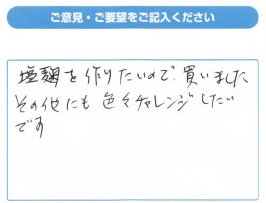 ご意見・ご要望をご記入ください
塩麹を作りたいので、買いました
その他にも色々チャレンジしたい
です